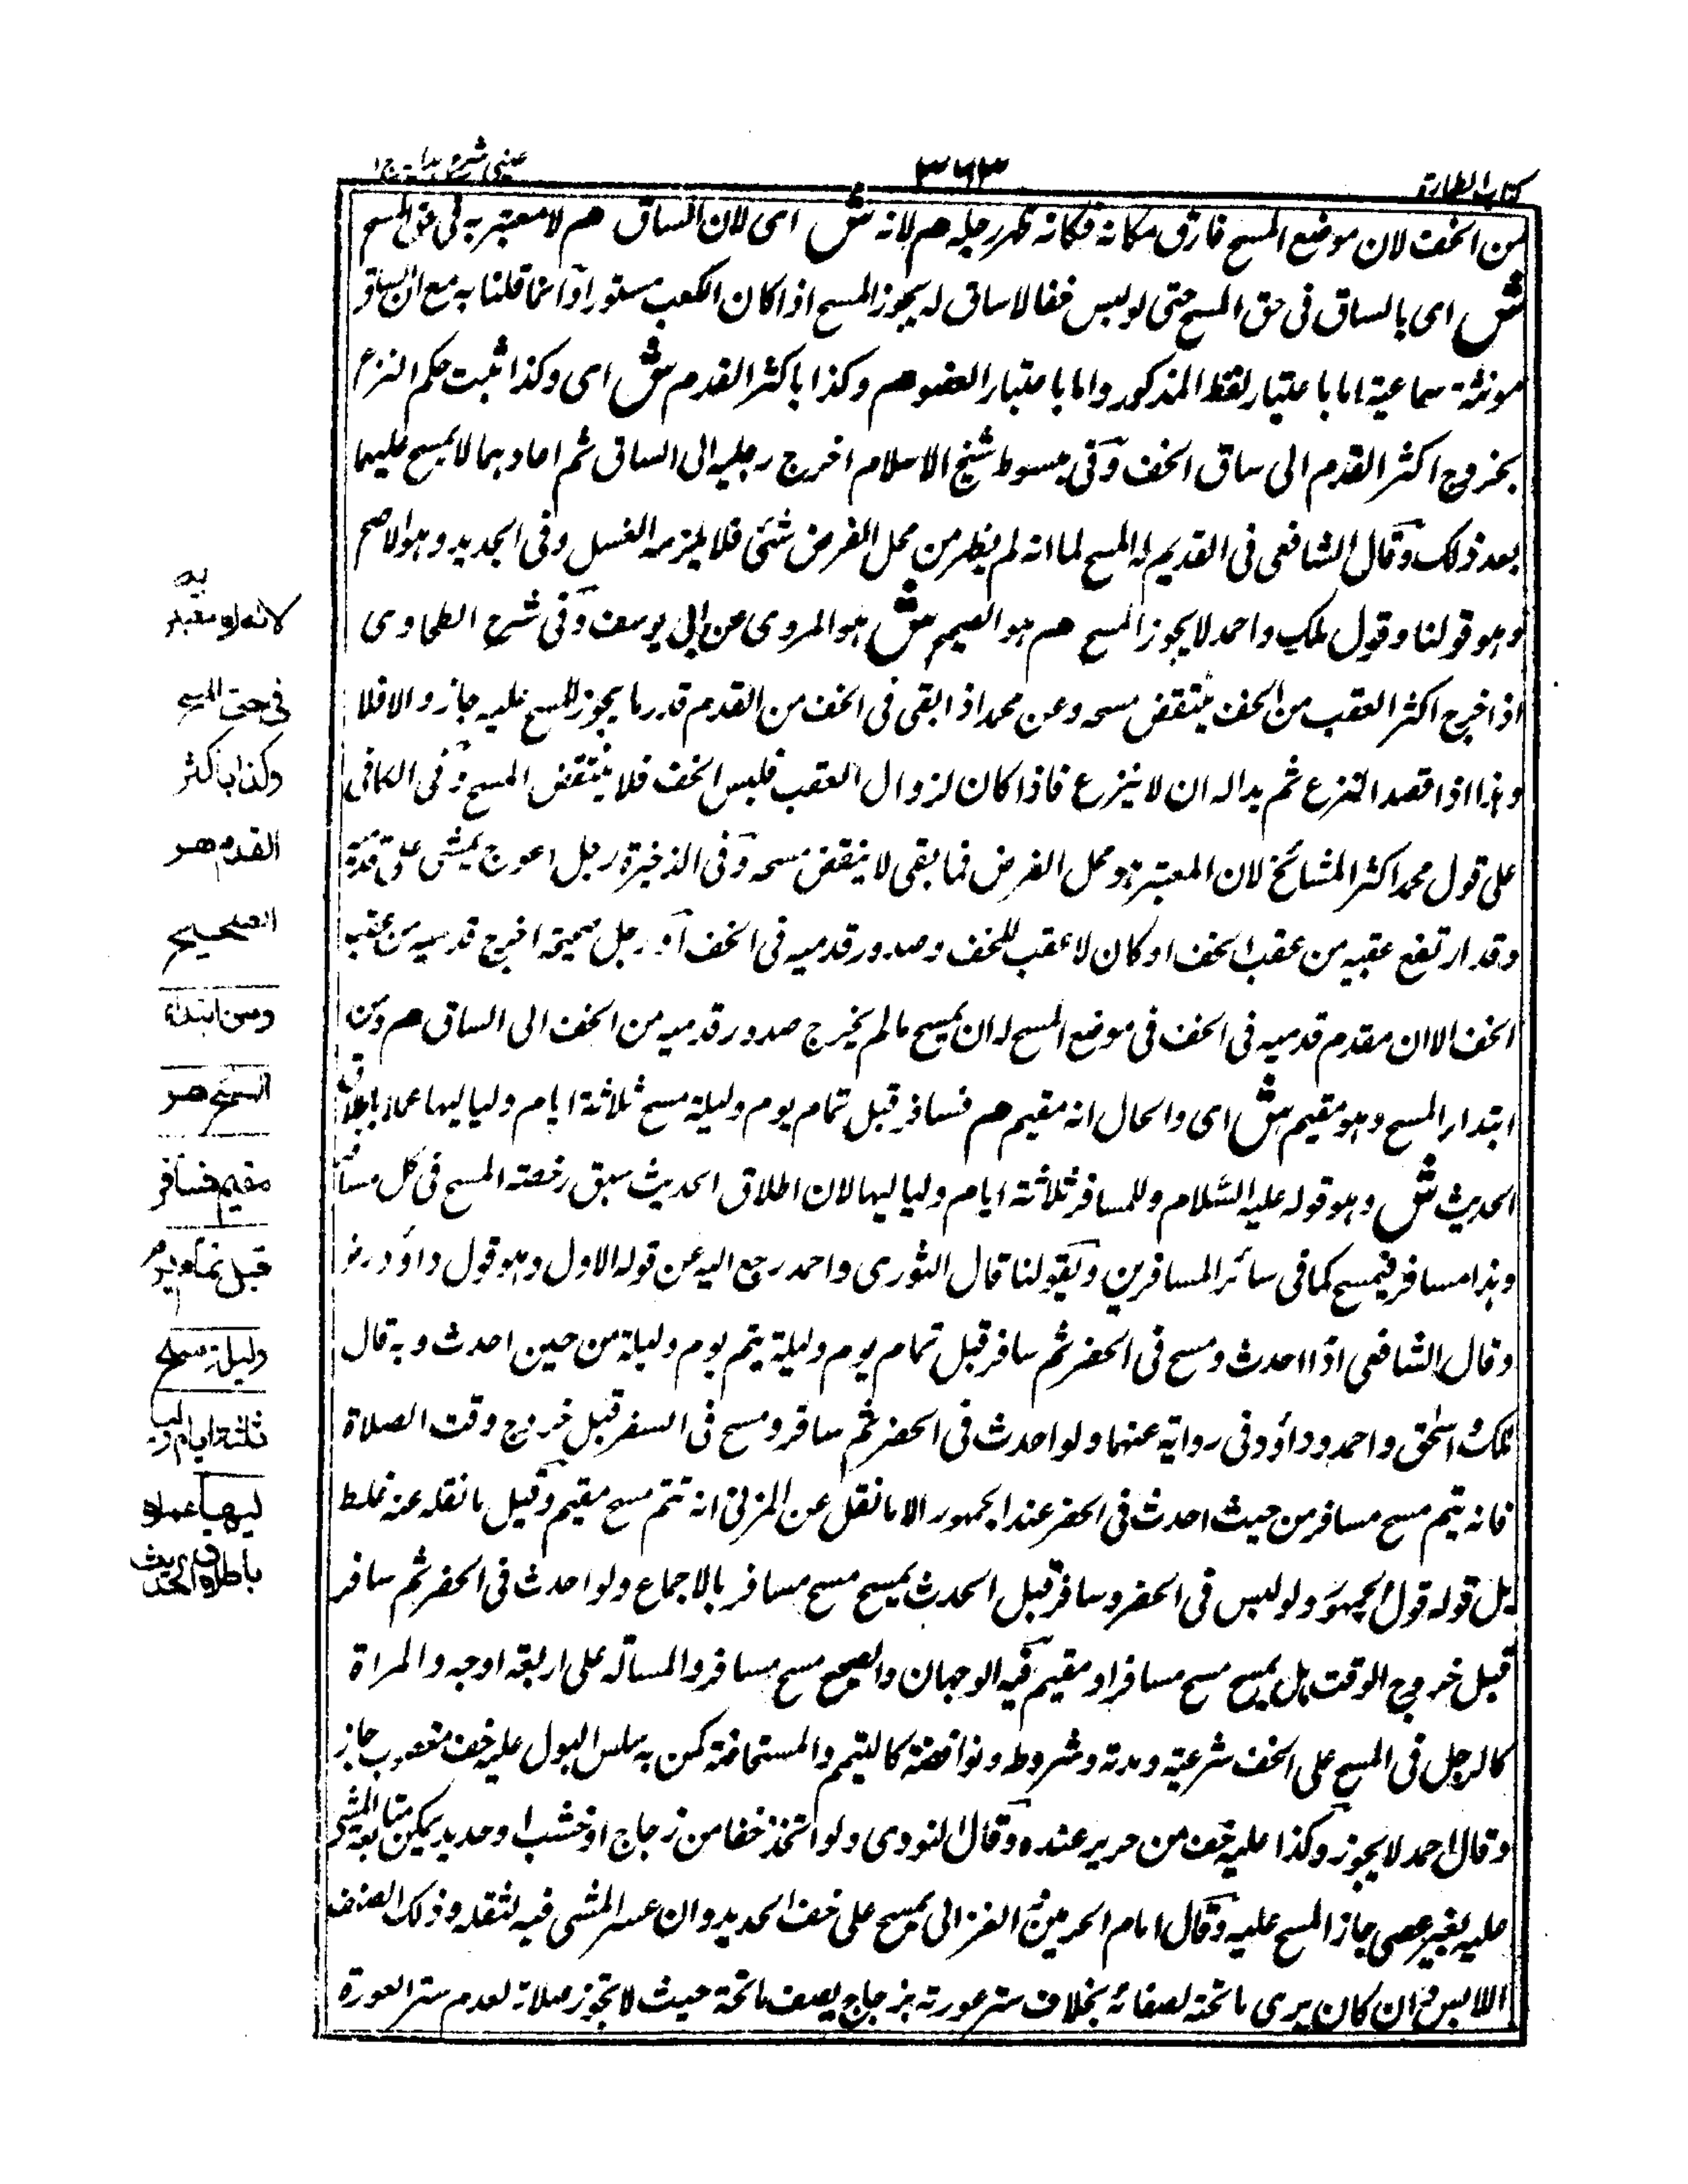 كتاب الطهارة
٣٦٣
عينى شرح هداية ج١
من الخف لان موضع المسح فارق مكانه فكانه ظهر رجله هم لانه ش اى لان الساق هم لا معتبر به فى حق المسح
ش اى بالساق فى حق المسح حتى لو لبس خفا لا ساق له يجوز المسح اذا كان الكعب مستورا وانما قلنا به مع ان الساق
مونثة سماعية اما باعتبار لفظ المذكور واما باعتبار العضو هم وكذا باكثر القدم ش اى وكذا يثبت حكم النزع
بخروج اكثر القدم الى ساق الخف وفى مبسوط شيخ الاسلام اخرج رجليه الى الساق ثم اعادهما لا يمسح عليهما
بعد ذلك وقال الشافعى فى القديم له المسح لما انه لم يظهر من محل الفرض شئ فلا يلزمه الغسل وفى الجديد وهو الاصح
وهو قولنا وقول ملك واحمد لا يجوز المسح هم هو الصحيح ش هو المروى عن ابى يوسف وفى شرح الطحاوى
اذا خرج اكثر العقب من الخف ينتقض مسحه وعن محمد اذا بقى فى الخف من القدم قدر ما يجوز المسح عليه جاز والا فلا
وهذا اذا قصد النزع ثم بدا له ان لا ينزع فاذا كان لزوال العقب فلبس الخف فلا ينتقض المسح وفى الكافى
على قول محمد اكثر المشائخ لان المعتبر هو محل الفرض فما بقى لا ينقض مسحه وفى الذخيرة رجل اعوج يمشى على قدميه
وقد ارتفع عقبه من عقب الخف او كان لا عقب للخف وصدور قدميه فى الخف او رجل صحيحة اخرج قدميه من عقبه
الخف الا ان مقدم قدميه فى الخف فى موضع المسح له ان يمسح ما لم يخرج صدور قدميه من الخف الى الساق هم ومن
ابتداء المسح وهو مقيم ش اى والحال انه مقيم هم فسافر قبل تمام يوم وليلة مسح ثلاثة ايام ولياليها عملا باطلاق
الحديث ش وهو قوله عليه السلام وللمسافر ثلاثة ايام ولياليها لان اطلاق الحديث سبق رخصة المسح فى كل مسافر
وهذا مسافر فيمسح كما فى سائر المسافرين وبقولنا قال الثورى واحمد رجع اليه عن قوله الاول وهو قول داؤد
وقال الشافعى اذا احدث ومسح فى الحضر ثم سافر قبل تمام يوم وليلة يتم يوم وليلة من حين احدث وبه قال
ملك واسحق واحمد وداؤد فى رواية عنهما ولو احدث فى الحضر ثم سافر ومسح فى السفر قبل خروج وقت الصلاة
فانه يتم مسح مسافر من حيث احدث فى الحضر عند الجمهور الا ما نقل عن المزنى انه تتم مسح مقيم وقيل ما نقله عنه غلط
بل قوله قول الجمهور ولو لبس فى الحضر وسافر قبل الحدث يمسح مسح مسافر بالاجماع ولو احدث فى الحضر ثم سافر
قبل خروج الوقت هل يمسح مسح مسافر او مقيم فيه الوجهان والصحيح مسح مسافر والمسألة على اربعة اوجه والمراة
كالرجل فى المسح على الخف شرعية ومدته وشروطه ونواقضه كالتيمم والمستحاضة كمن به سلس البول عليه خف مغصوب جاز
وقال احمد لا يجوز وكذا عليه خف من حرير عنده وقال النووى ولو اتخذ خفا من زجاج او خشب او حديد يمكن متابعة المشى
عليه بغير عصى جاز المسح عليه وقال امام الحرمين والغزالى يمسح على خف الحديد وان عسر المشى فيه لثقله وذلك لضعف
اللابس وان كان يرى ما تحته لصفائه بخلاف ستر عورته بزجاج يصف ما تحته حيث لا تجوز صلاته لعدم ستر العورة
لانه لا معتبر به
فى حق المسح
وكذا باكثر
القدم هم
الصحيح
ومن ابتداء
المسح هم
مقيم فسافر
قبل تمام يوم
وليلة مسح
ثلثة ايام وليا
ليها عملا
باطلاق الحديث